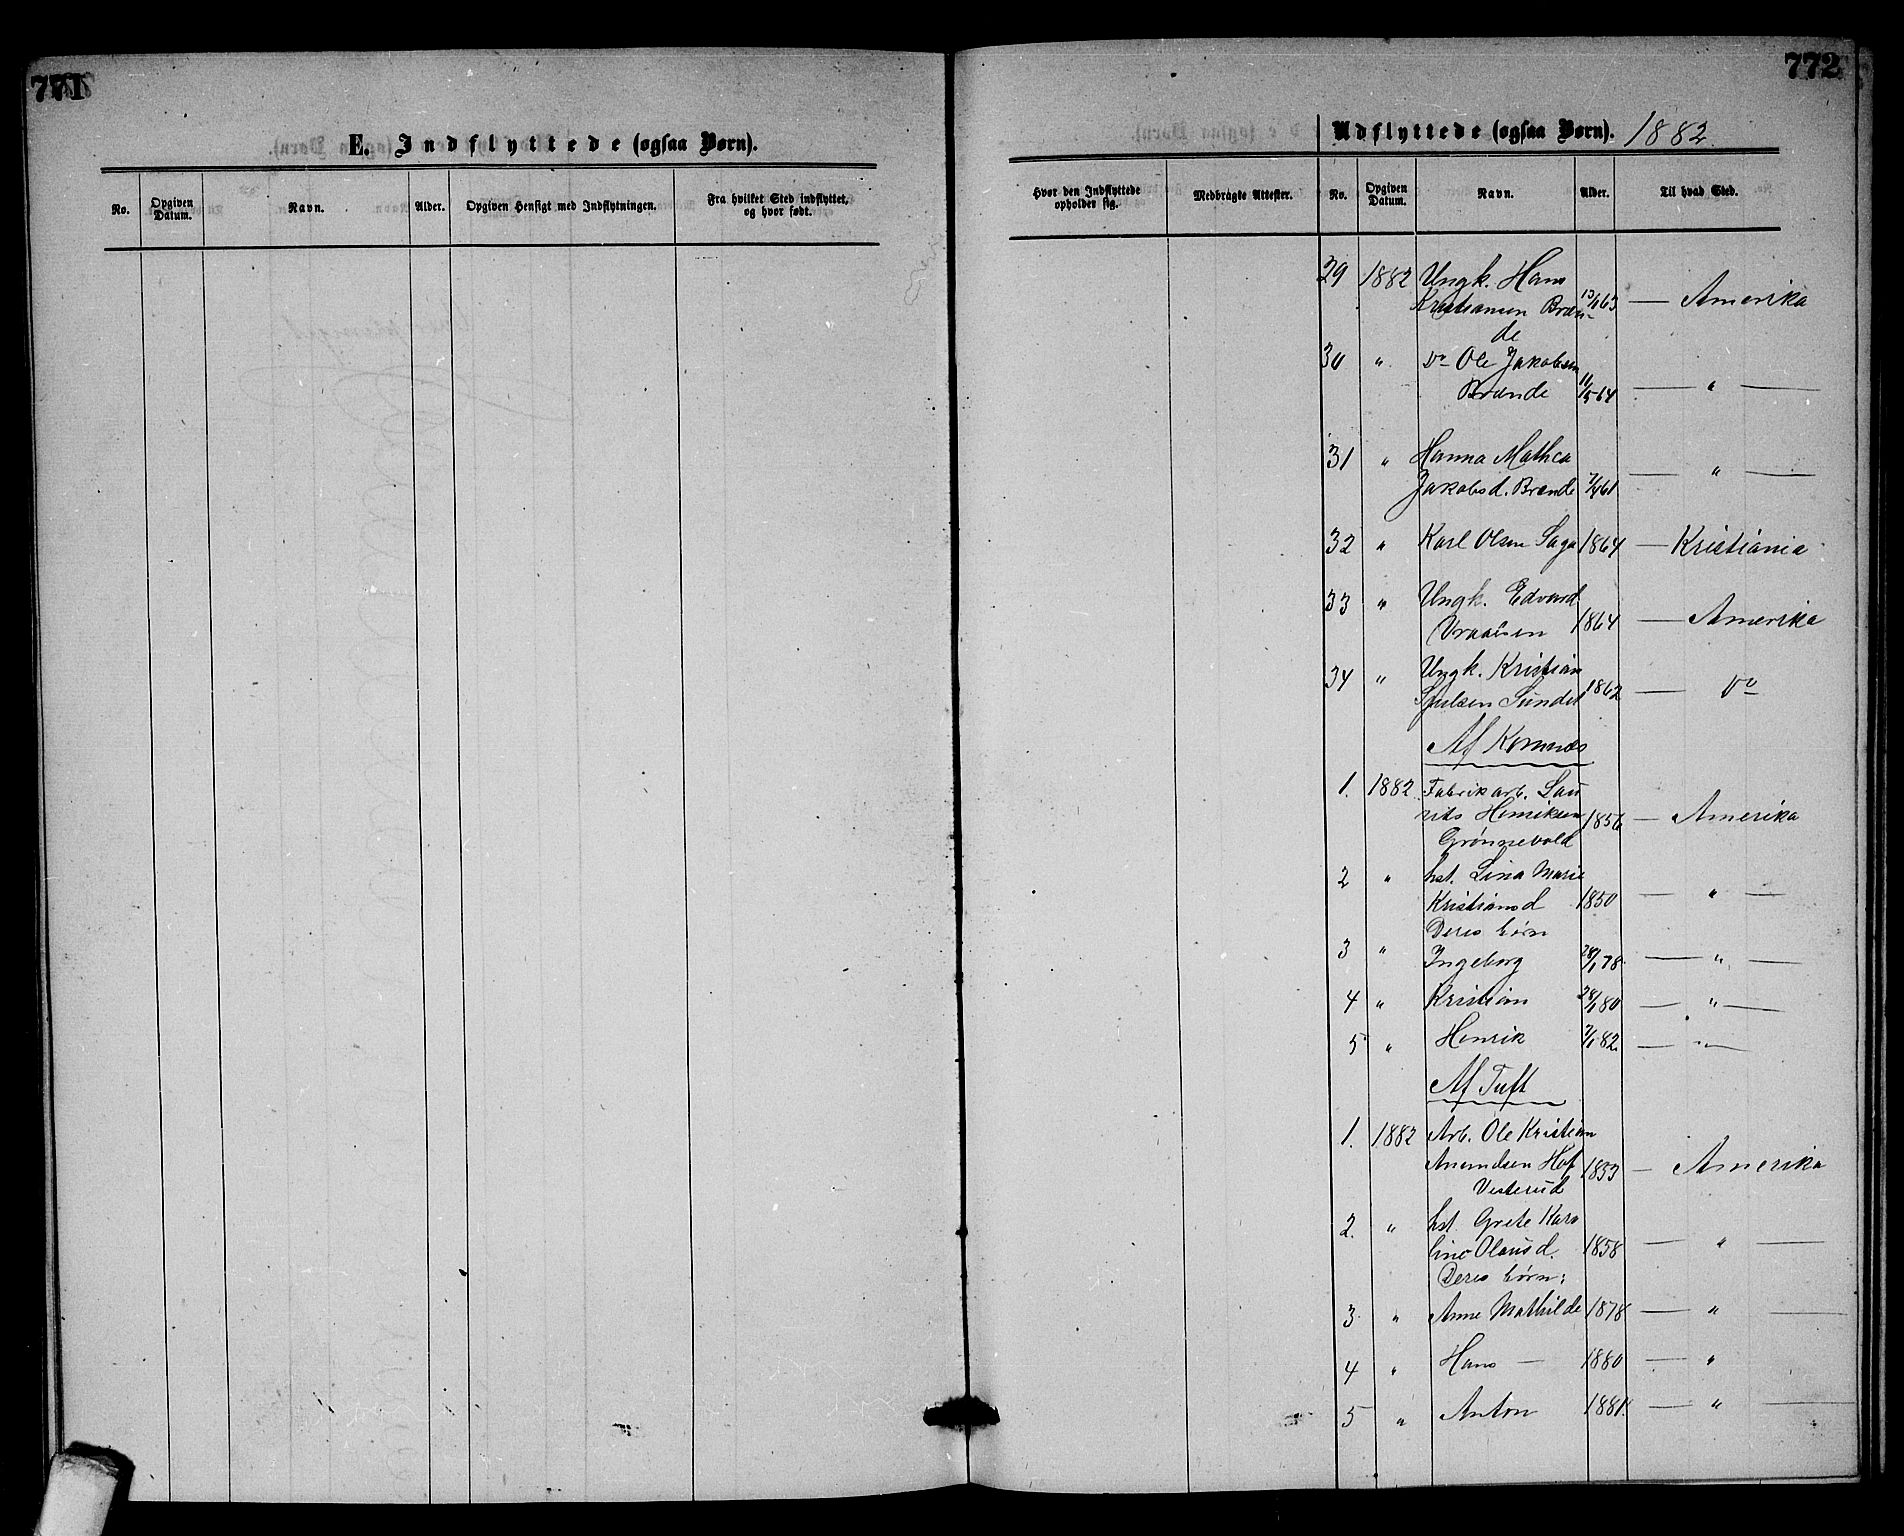 771
E. Indflyttede (ogsaa Børn).
No.
Opgiven Datum.
Navn.
Alder.
Opgiven Hensigt med Indflytningen.
Fra hvilket Sted indflyttet, og hvor født.
772
Udflyttede (ogsaa Børn). 1882.
Hvor den Indflyttede opholder sig.
Medbragte Attester.
No.
Opgiven Datum.
Navn.
Alder.
Til hvad Sted.
29 1882 Ungk. Hans
Kristiansen Bræn- 63 — Amerika
de
30 " Do Ole Jakobsen
Brænde 11/5 64 — " —
31 " Hanna Mathea
Jakobsd. Brænde 7/4 61 — " —
32 " Karl Olsen Saga 1864 — Kristiania
33 " Ungk. Edvard
1864 — Amerika
34 " Ungk. Kristian
Sundet 1862 — Do
Af Komnæs
1. 1882 Fabrikarb. Lau
rits Henriksen 1856 — Amerika
Grønnevold
2 " hst. Lina Marie
Kristiansd 1850 — " —
Deres børn
3 " Ingeborg 28/1 78. — " —
4 " Kristian 28/1 80 — " —
5 " Henrik 7/1 82. — " —
Af Tuft
1. 1882 Arb. Ole Kristian
Amundsen Hof 1853 — Amerika
Vesterud
2. " hst. Grete Karo
line Olausd. 1858 — " —
Deres børn:
3 " Anne Mathilde 1878 — " —
4 " Hans — 1880 — "
5 " Anton 1881. — " —